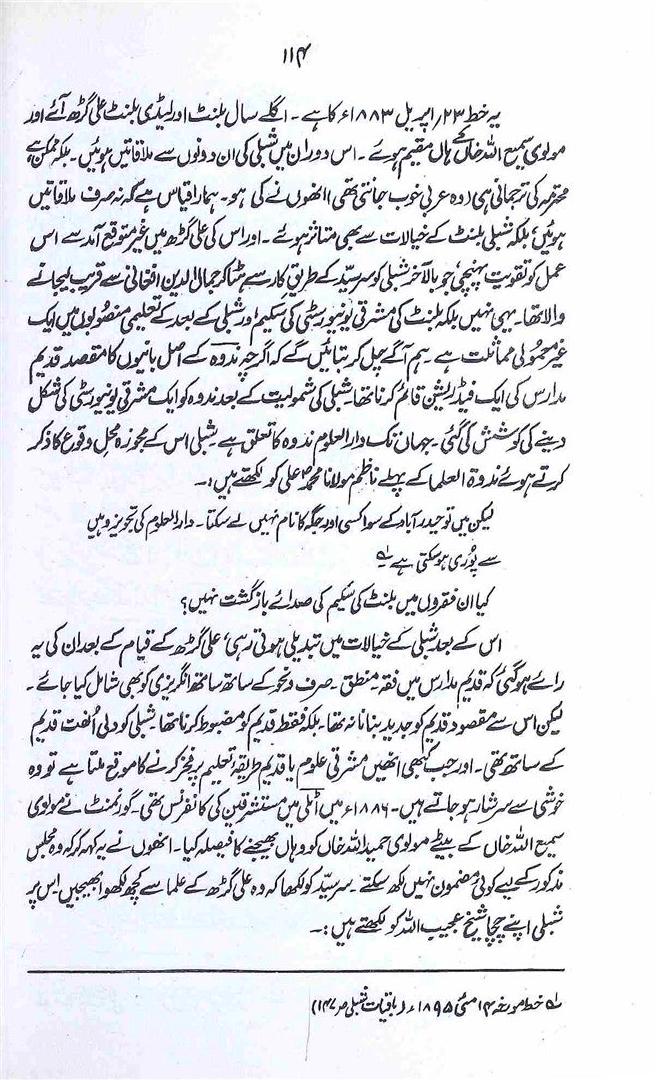 ۱۱۴
یہ خط ۲۳/ اپریل ۱۸۸۳ء کا ہے۔ اگلے سال بلنٹ اور لیڈی بلنٹ علی گڑھ آئے اور
مولوی سمیع اللہ خاں کے ہاں مقیم ہوئے۔ اس دوران میں شبلی کی ان دونوں سے ملاقاتیں ہوئیں۔ بلکہ ممکن ہے
محترمہ کی ترجمانی ہی (وہ عربی خوب جانتی تھی) انھوں نے کی ہو۔ ہمارا قیاس ہے کہ نہ صرف ملاقاتیں
ہوئیں، بلکہ شبلی بلنٹ کے خیالات سے بھی متاثر ہوئے۔ اور اس کی علی گڑھ میں غیر متوقع آمد سے اس
عمل کو تقویت پہنچی، جو بالآخر شبلی کو سرسید کے طریق کار سے ہٹا کر جمال الدین افغانی سے قریب لیجانے
والا تھا۔ یہی نہیں بلکہ بلنٹ کی مشرقی یونیورسٹی کی سکیم اور شبلی کے بعد کے تعلیمی منصوبوں میں ایک
غیر معمولی مماثلت ہے۔ ہم آگے چل کر بتائیں گے کہ اگرچہ ندوہ کے اصل بانیوں کا مقصد قدیم
مدارس کی ایک فیڈریشن قائم کرنا تھا، شبلی کی شمولیت کے بعد ندوہ کو ایک مشرقی یونیورسٹی کی شکل
دینے کی کوشش کی گئی۔ جہاں تک دارالعلوم ندوہ کا تعلق ہے شبلی اس کے مجوزہ محل وقوع کا ذکر
کرتے ہوئے ندوۃ العلما کے پہلے ناظم مولانا محمد علی کو لکھتے ہیں:۔
لیکن میں تو حیدرآباد کے سوا کسی اور جگہ کا نام نہیں لے سکتا۔ دارالعلوم کی تجویز وہیں
سے پوری ہو سکتی ہے ؎۱
کیا ان فقروں میں بلنٹ کی سکیم کی صدائے بازگشت نہیں؟
اس کے بعد شبلی کے خیالات میں تبدیلی ہوتی رہی، علی گڑھ کے قیام کے بعد ان کی یہ
رائے ہو گئی کہ قدیم مدارس میں فقہ۔ منطق۔ صرف و نحو کے ساتھ ساتھ انگریزی کو بھی شامل کیا جائے۔
لیکن اس سے مقصود قدیم کو جدید بنانا نہ تھا۔ بلکہ فقط قدیم کو مضبوط کرنا تھا۔ شبلی کو دلی اُلفت قدیم
کے ساتھ تھی۔ اور جب کبھی انھیں مشرقی علوم یا قدیم طریقۂ تعلیم پر فخر کرنے کا موقع ملتا ہے تو وہ
خوشی سے سرشار ہو جاتے ہیں۔ ۱۸۸۶ء میں اٹلی میں مستشرقین کی کانفرنس تھی۔ گورنمنٹ نے مولوی
سمیع اللہ خاں کے بیٹے مولوی حمید اللہ خاں کو وہاں بھیجنے کا فیصلہ کیا۔ انھوں نے یہ کہہ کر کہ وہ مجلس
مذکور کے لیے کوئی مضمون نہیں لکھ سکتے۔ سرسید کو لکھا کہ وہ علی گڑھ کے علما سے کچھ لکھوا بھیجیں۔ اس پر
شبلی اپنے چچا شیخ عجیب اللہ کو لکھتے ہیں:۔
؎۱ خط مورخہ ۱۴ مئی ۱۸۹۵ء (باقیات شبلی ص ۱۴۷)